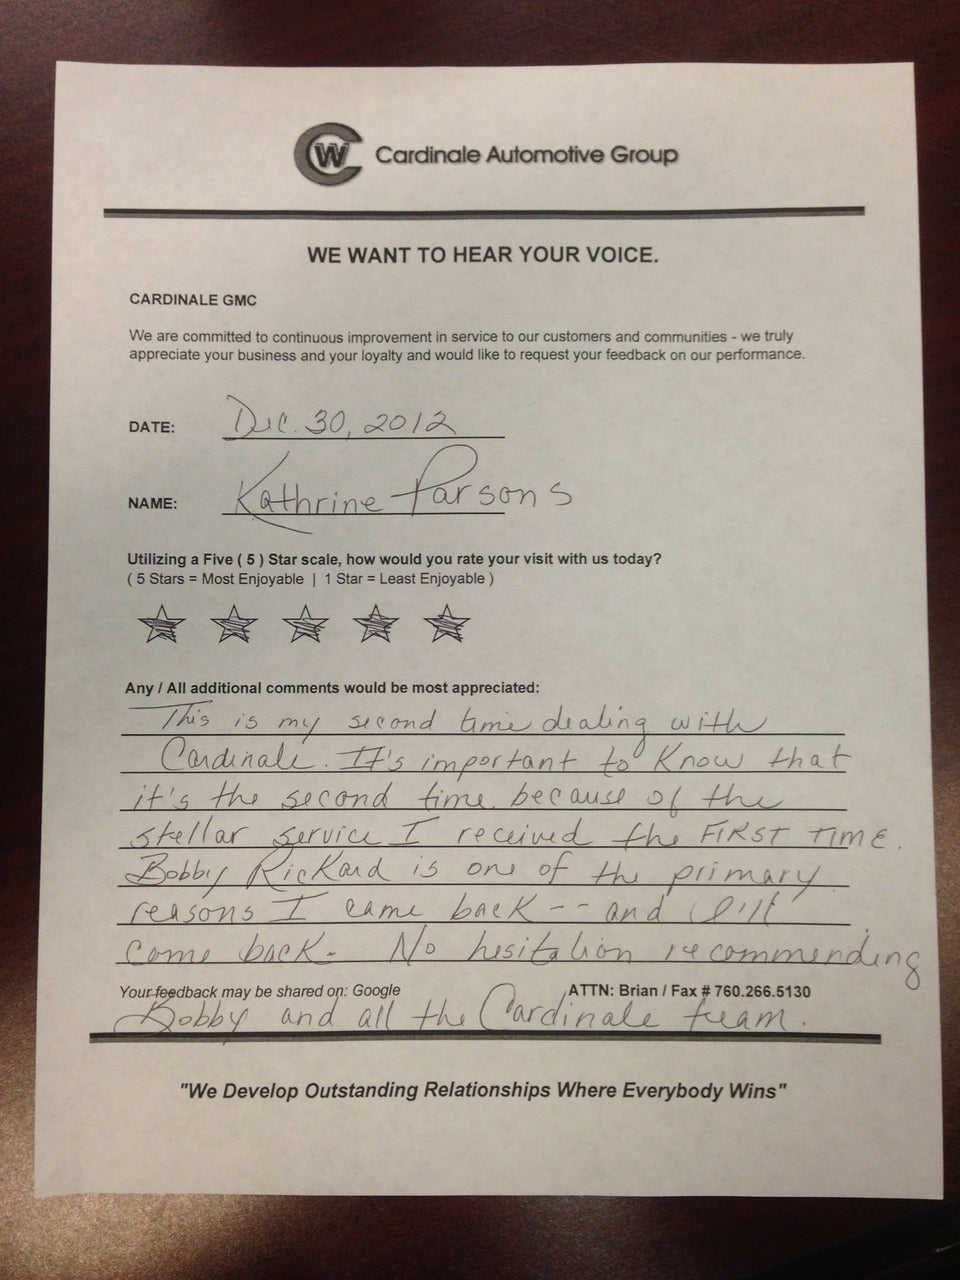 CW Cardinale Automotive Group
WE WANT TO HEAR YOUR VOICE.
CARDINALE GMC
We are committed to continuous improvement in service to our customers and communities - we truly
appreciate your business and your loyalty and would like to request your feedback on our performance.
DATE: Dec. 30, 2012
NAME: Kathrine Parsons
Utilizing a Five ( 5 ) Star scale, how would you rate your visit with us today?
( 5 Stars = Most Enjoyable | 1 Star = Least Enjoyable )
Any / All additional comments would be most appreciated:
This is my second time dealing with
Cardinale. It's important to know that
it's the second time because of the
stellar service I received the FIRST TIME.
Bobby Rickard is one of the primary
reasons I came back -- and I'll
come back. No hesitation recommending
Your feedback may be shared on: Google ATTN: Brian / Fax # 760.266.5130
Bobby and all the Cardinale team.
"We Develop Outstanding Relationships Where Everybody Wins"